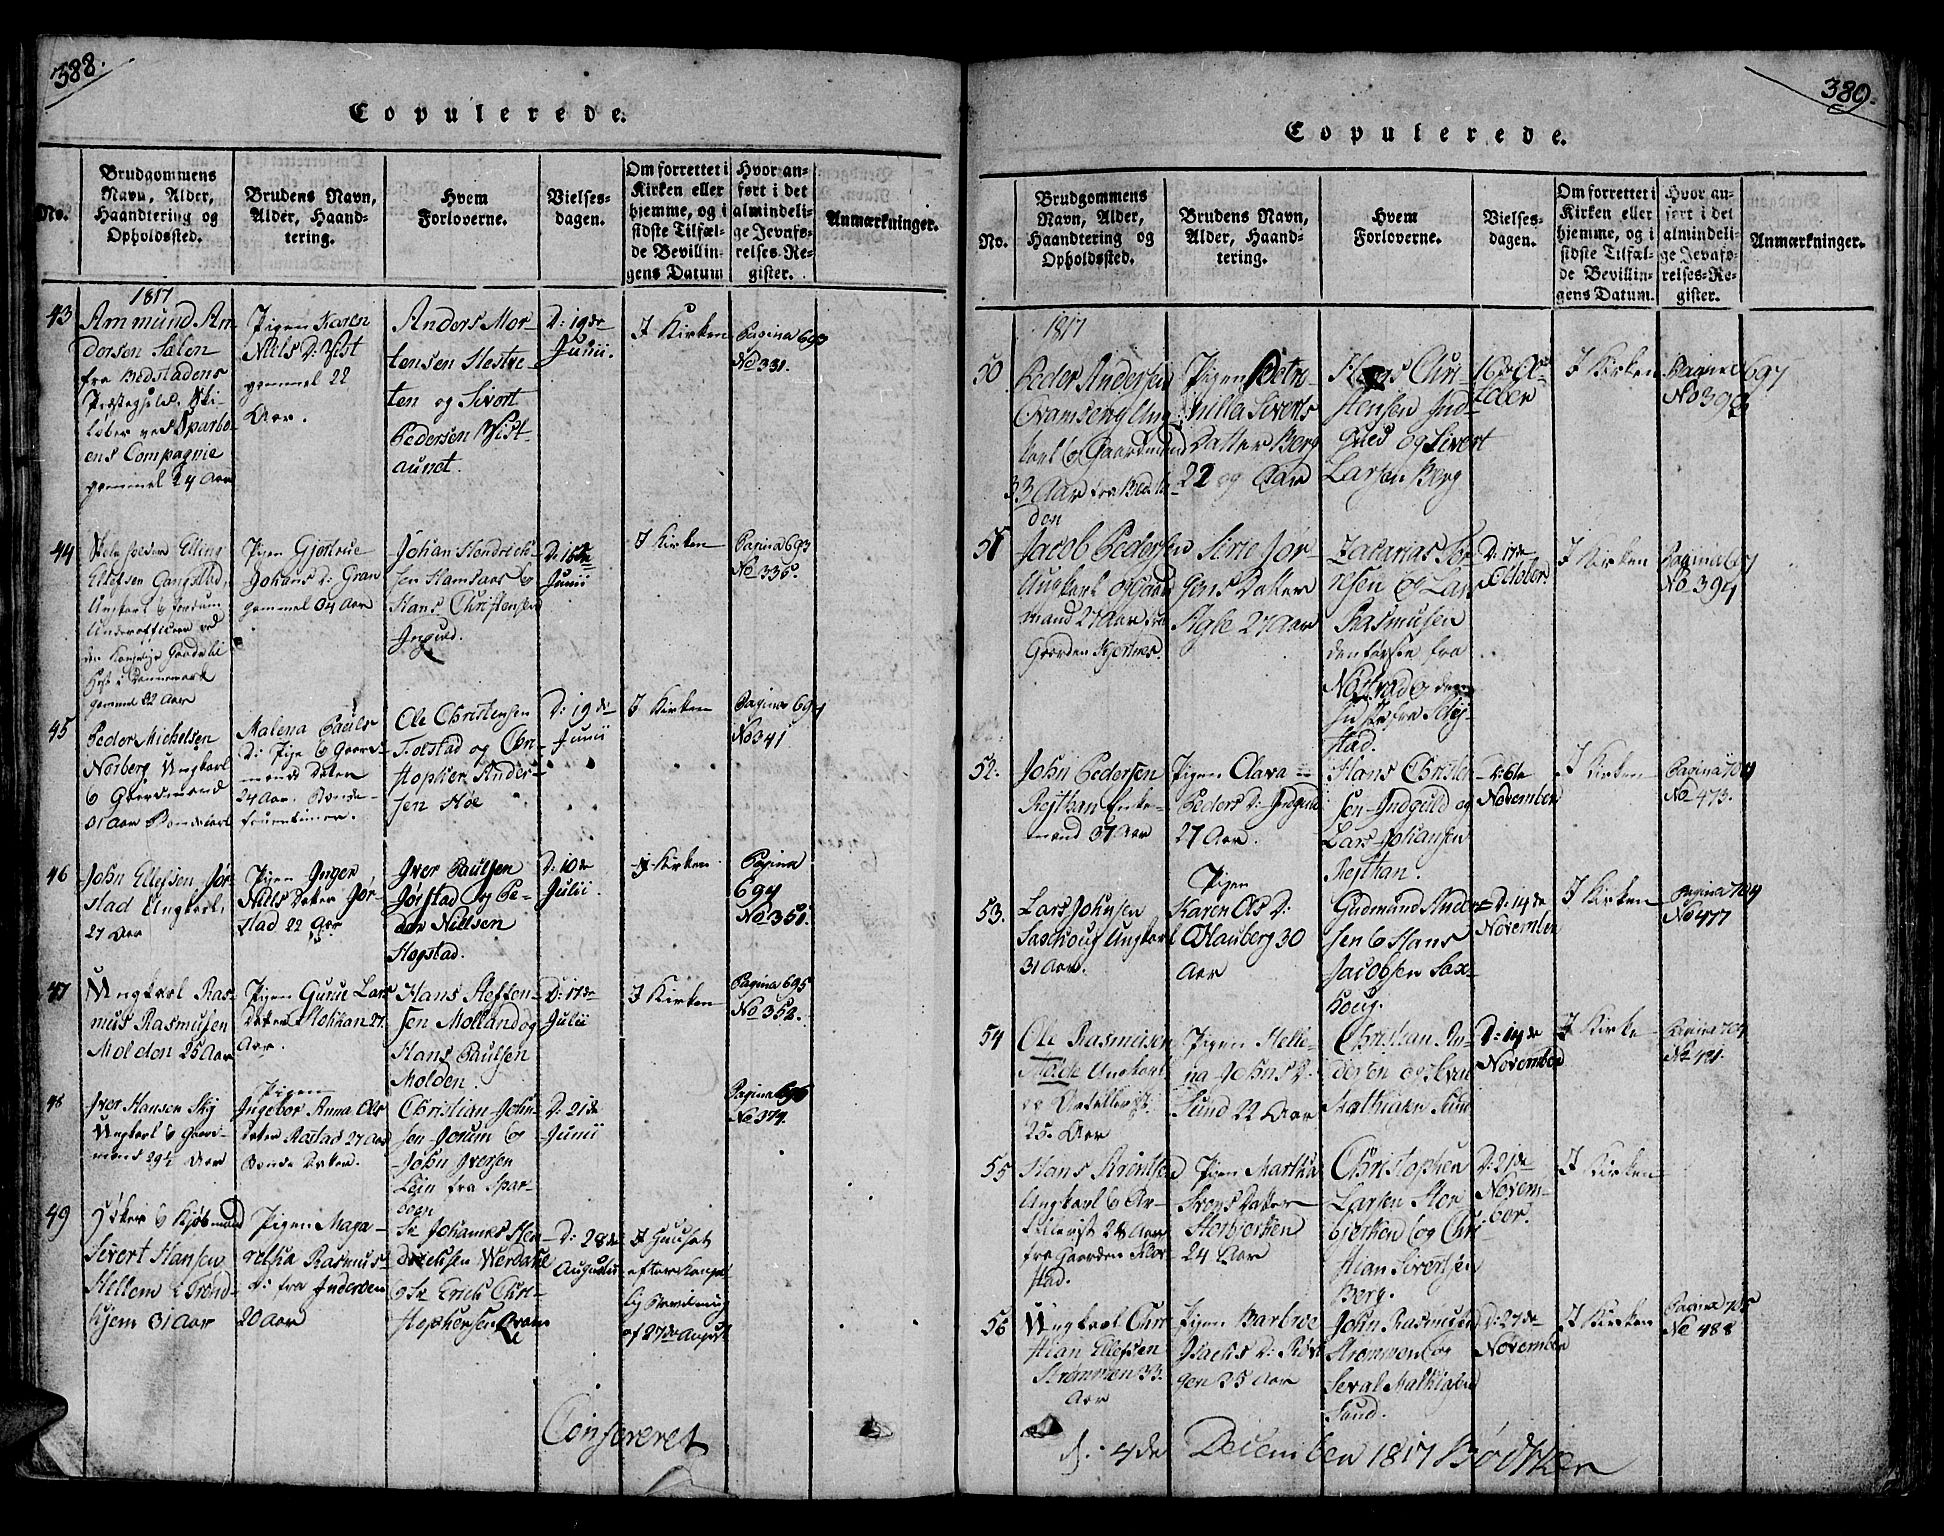 388.
Copulerede.
No.
Brudgommens
Navn, Alder,
Haandtering og
Opholdssted.
Brudens Navn,
Alder, Haand-
tering.
Hvem
Forloverne.
Vielses-
dagen.
Om forrettet i
Kirken eller
hjemme, og i
sidste Tilfæl-
de Bevillin-
gens Datum
Hvor an-
ført i det
almindeli-
ge Jevnfø-
relses-Re-
gister.
Anmærkninger.
1817
43
Ammund An-
dersen Sælen
fra Bedstadens
Præstegield. Ski-
løber ved Sparbo-
ens Compagnie
gammel 24 Aar
Pigen Karen
Niels D: Vist
gammel 22
Aar.
Anders Mor-
tensen Hestve-
ten og Sivert
Pedersen Vist-
aunet.
D: 19de
Junii.
I Kirken
Pagina 693
No 331.
44
Elling
Ellefsen Gangstad
Ungkarl
Underofficeer ved
gammel 32 Aar
Pigen Gjertrue
Johans D: Gran
gammel 34 Aar
Johan Hendrich-
sen Hamsaas &
Hans Christensen
Inguld.
D: 16de
Junii
I Kirken
Pagina 693
No 336.
45
Peder Michelsen
Norberg Ungkarl
& Gaardmand
31 Aar
Malena Pauls
D: Pige & Gaard-
mands Datter
24 Aar.
Ole Christensen
Tolstad og Chri-
stopher Ander-
sen Høe
D: 19de
Junii
I Kirken
Pagina 694
No 341
46
John Ellefsen Jør-
stad Ungkarl.
27 Aar
Pigen Inger
Niels Datter Jør-
stad 22 Aar
Iver Paulsen
Jørstad og Pe-
der Nielsen
Hogstad.
D: 10de
Julii
I Kirken
Pagina
694
No 351.
47
Ungkarl Ras-
mus Rasmusen
Molden 25 Aar
Pigen Gurue Lars
Datter 27
Aar.
Hans Steffen-
sen Molland og
Hans Paulsen
Molden.
D: 17de
Julii
I Kirken
Pagina 695
No 352.
48
Iver Hansen
Ungkarl & Gaard-
mand 29½ Aar
Pigen
Ingebor Anna Ols
Datter Rostad 27 Aar
Bonde Datter.
Christian John-
sen Jorum &
John Iversen
Lein fra Spar-
boen
D: 21de
Junii
Pagina 696
No 374.
49
Sivert Hansen
Hellem i Trond-
hjem 31 Aar
Pigen Maga-
retha Rasmus
D: fra Inderøen
20 Aar
Sr Johannes Hen-
drichsen Werdahl
& Sr Erich Chri-
stophersen
D: 28de
Augustii
I Huuset
efter Konge-
lig Bevilning
af 27de August
Confereret
380.
Copulerede.
No.
Brudgommens
Navn, Alder,
Haandtering og
Opholdssted.
Brudens Navn,
Alder, Haand-
tering.
Hvem
Forloverne.
Vielses-
dagen.
Om forrettet i
Kirken eller
hjemme, og i
sidste Tilfæl-
de Bevillin-
gens Datum.
Hvor an-
ført i det
almindeli-
ge Jevnfø-
relses-Re-
gister.
Anmærkninger.
1817
50
Peder Andersen
Ung-
karl & Gaardmand
33 Aar fra Beitsta-
den
Pigen Petro-
nilla Siverts
Datter Berg
22 og Aar
Hans Chri-
stensen Ind-
guld og Sivert
Larsen Berg
16de Oc-
tober
I Kirken
Pagina 697
No 392
51
Jacob Pedersen
Ungkarl og Gaard
mand 27 Aar fra
Gaarden Kjerknes.
Sirie Jør-
gens Datter
27 Aar
Zacarias
og Lars
Rasmusen
den første fra
& den
D: 17de
October
I Kirken
Pagina 697
No 394
52.
John Pedersen
Rejthan Enke-
mand 37 Aar
Pigen Olava
Peders D: Indguld
27 Aar.
Hans Christen-
sen Indguld og
Lars Johansen
Rejthan.
D: 6te
November
I Kirken
Pagina 704
No 473.
53.
Lars Johnsen
Saxhoug Ungkarl
31 Aar.
Pigen
Karen Ols D:
30
Aar
Gudmand Ander-
sen & Hans
Jacobsen Sax-
houg.
D: 14de
November
I Kirken
Pagina 704
No 477
54
Ole Rasmusen
Ungkarl
25. Aar
Pigen Helle-
na Johns D:
Sund 22 Aar
Christian An-
dersen og Seval
Mathiasen Sund
D: 14de
November
I Kirke
Pagina 704
No 481.
55
Hans
Ungkarl & Ar-
tillerist 28 Aar
fra Gaarden
Pigen Martha
Datter
Storbjerken
24 Aar
Christopher
Larsen Stor
bjerken og Chri-
stian Sivertsen
Berg.
D: 21de
Novem-
ber.
I Kirken
56
Ungkarl Chri-
stian Ellefsen
Strømmen 33
Aar
Pigen Barbroe
Isachs D: Røv-
gen 25 Aar
John Rasmusen
Strømmen &
Seval Mathiasen
Sund.
D: 27de
November
I Kirken
Pagina 705
No 488
d: 4de December 1817 Bødtker